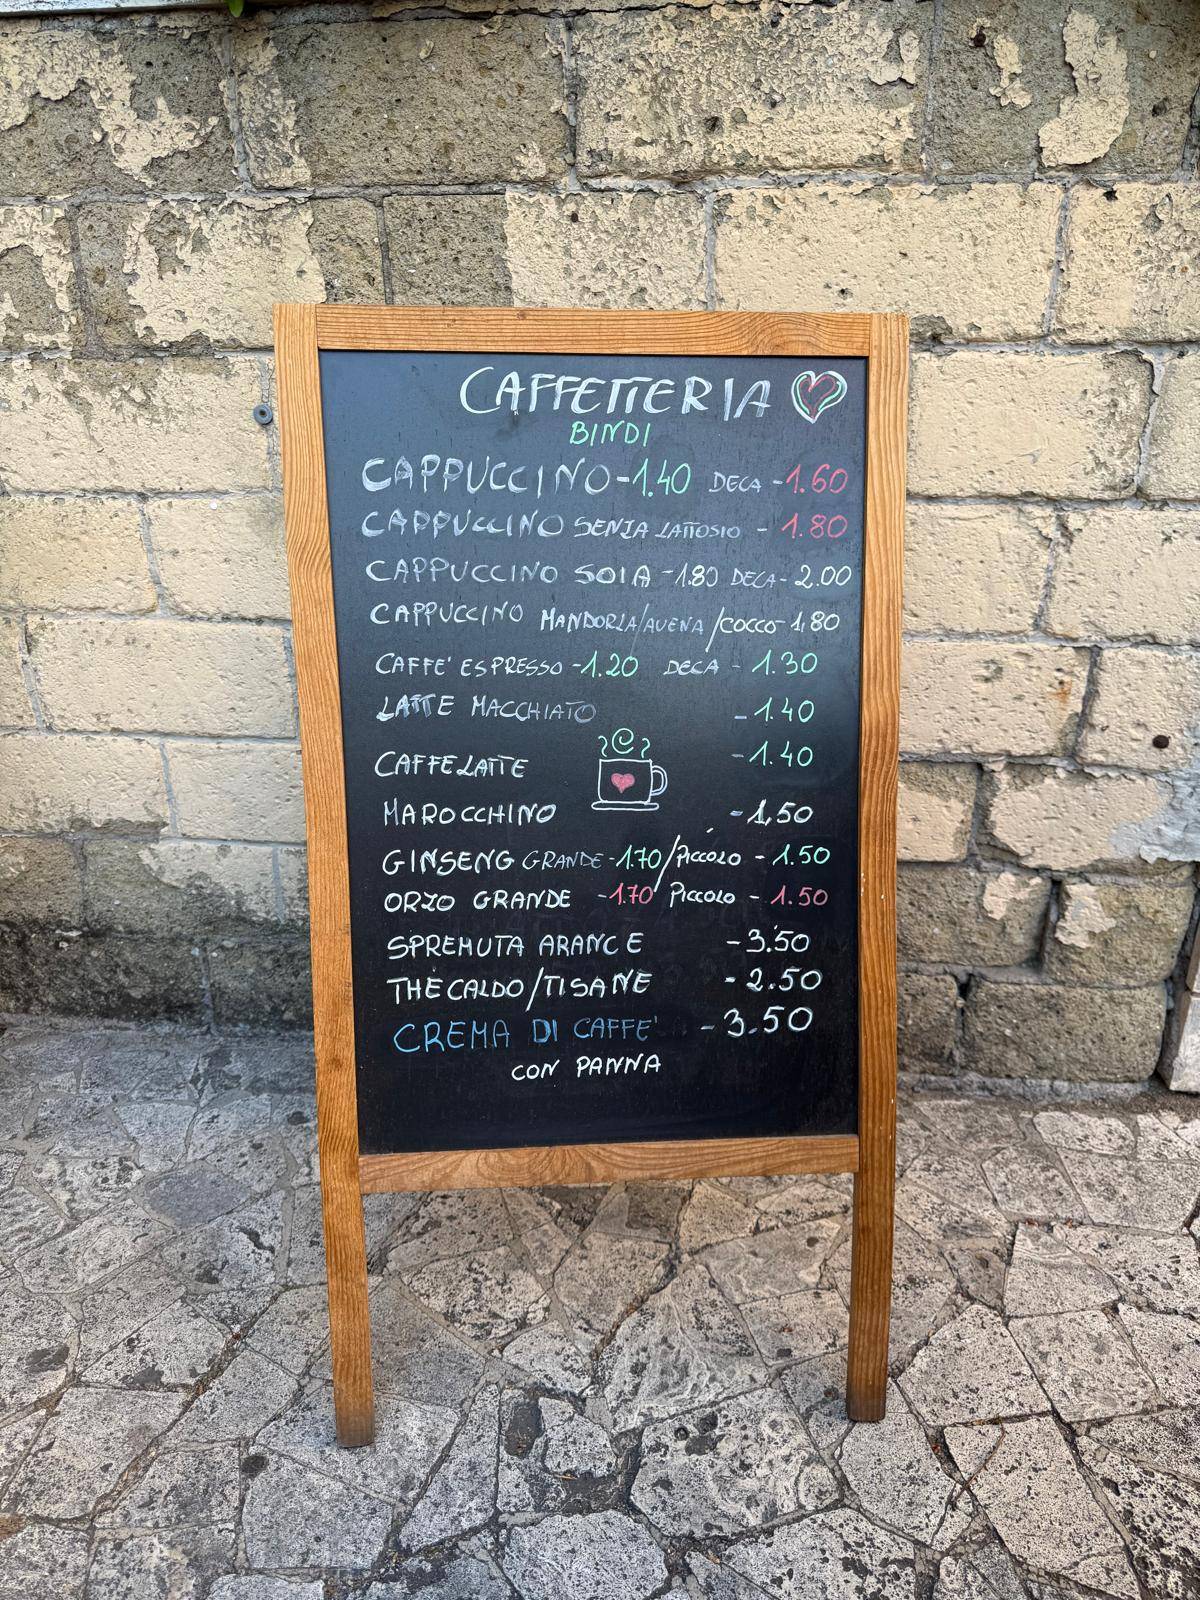 CAFFETTERIA
BINDI
CAPPUCCINO -1.40 DECA -1.60
CAPPUCCINO SENZA LATTOSIO - 1.80
CAPPUCCINO SOIA -1.80 DECA- 2.00
CAPPUCCINO MANDORLA/AVENA/COCCO- 1,80
CAFFE' ESPRESSO -1.20 DECA - 1.30
LATTE MACCHIATO - 1.40
CAFFELATTE -1.40
MAROCCHINO -1,50
GINSENG GRANDE -1.70/PICCOLO - 1.50
ORZO GRANDE -1.70 PICCOLO - 1.50
SPREMUTA ARANCE -3.50
THÈ CALDO/TISANE - 2.50
CREMA DI CAFFE' - 3.50
CON PANNA